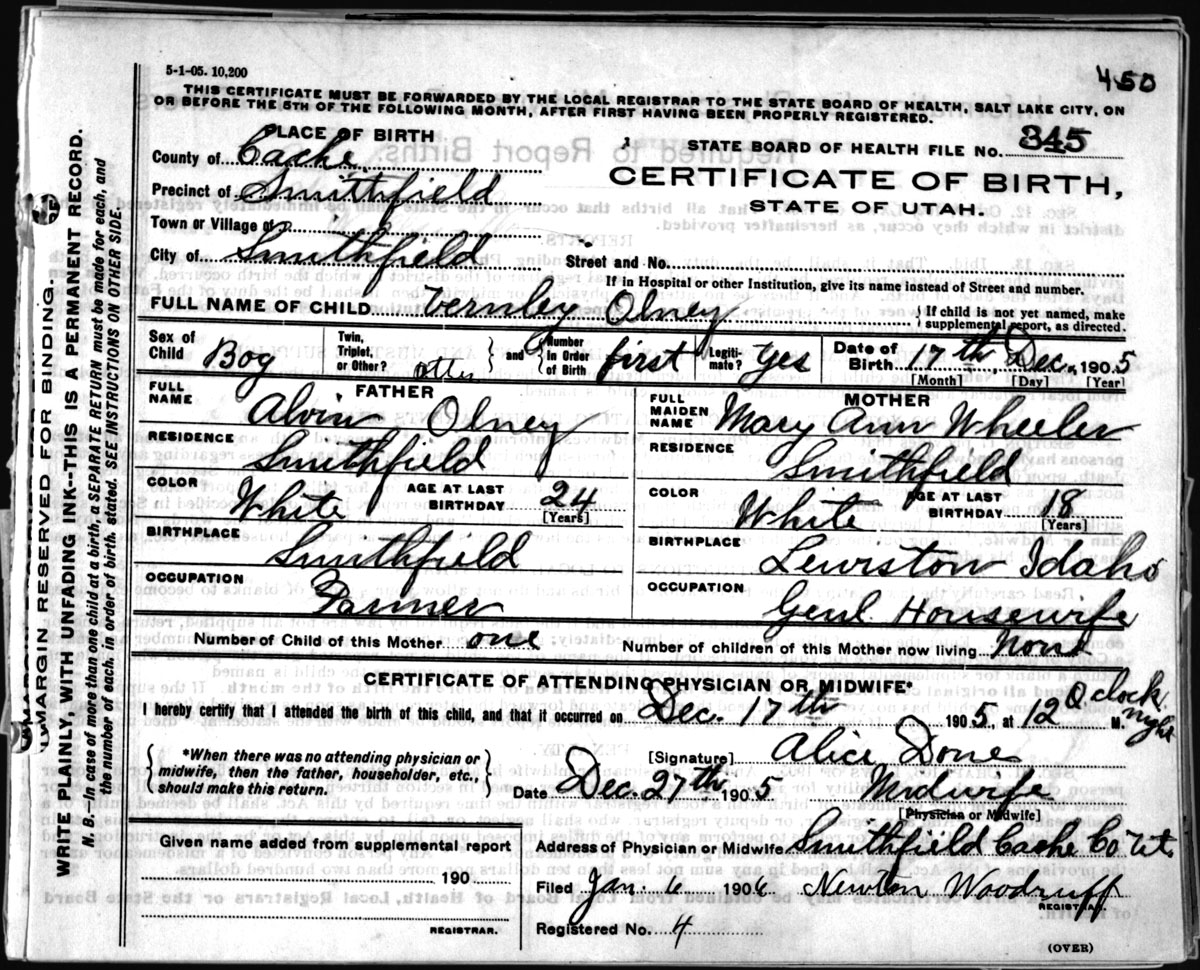 5-1-05. 10,200
450
THIS CERTIFICATE MUST BE FORWARDED BY THE LOCAL REGISTRAR TO THE STATE BOARD OF HEALTH, SALT LAKE CITY, ON
OR BEFORE THE 5TH OF THE FOLLOWING MONTH, AFTER FIRST HAVING BEEN PROPERLY REGISTERED.
PLACE OF BIRTH
STATE BOARD OF HEALTH FILE No. 345
County of Cache
CERTIFICATE OF BIRTH,
Precinct of Smithfield
STATE OF UTAH.
Town or Village of
City of Smithfield Street and No.
If in Hospital or other Institution, give its name instead of Street and number.
FULL NAME OF CHILD Vernley Olney { If child is not yet named, make supplemental report, as directed.
Sex of Child Boy Twin, Triplet, or Other? } and { Number in Order of Birth first Legiti- mate? yes Date of Birth 17th Dec. 1905
[Month] [Day] [Year]
FATHER
MOTHER
FULL NAME Alvin Olney
FULL MAIDEN NAME Mary Ann Wheeler
RESIDENCE Smithfield
RESIDENCE Smithfield
COLOR White AGE AT LAST BIRTHDAY 24 [Years]
COLOR White AGE AT LAST BIRTHDAY 18 [Years]
BIRTHPLACE Smithfield
BIRTHPLACE Lewiston Idaho
OCCUPATION Farmer
OCCUPATION Genl. Housewife
Number of Child of this Mother one Number of children of this Mother now living None
CERTIFICATE OF ATTENDING PHYSICIAN OR MIDWIFE*
I hereby certify that I attended the birth of this child, and that it occurred on Dec. 17th 1905, at 12 O clock night M.
*When there was no attending physician or
midwife, then the father, householder, etc.,
should make this return.
[Signature] Alice Done
Date Dec. 27th 1905 Midwife
[Physician or Midwife]
Given name added from supplemental report
190
REGISTRAR.
Address of Physician or Midwife Smithfield Cache Co Ut.
Filed Jan. 6 1906 Newton Woodruff
REGISTRAR.
Registered No. 4
(OVER)
MARGIN RESERVED FOR BINDING.
WRITE PLAINLY, WITH UNFADING INK--THIS IS A PERMANENT RECORD.
N. B.--In case of more than one child at a birth, a SEPARATE RETURN must be made for each, and
the number of each, in order of birth, stated. SEE INSTRUCTIONS ON OTHER SIDE.